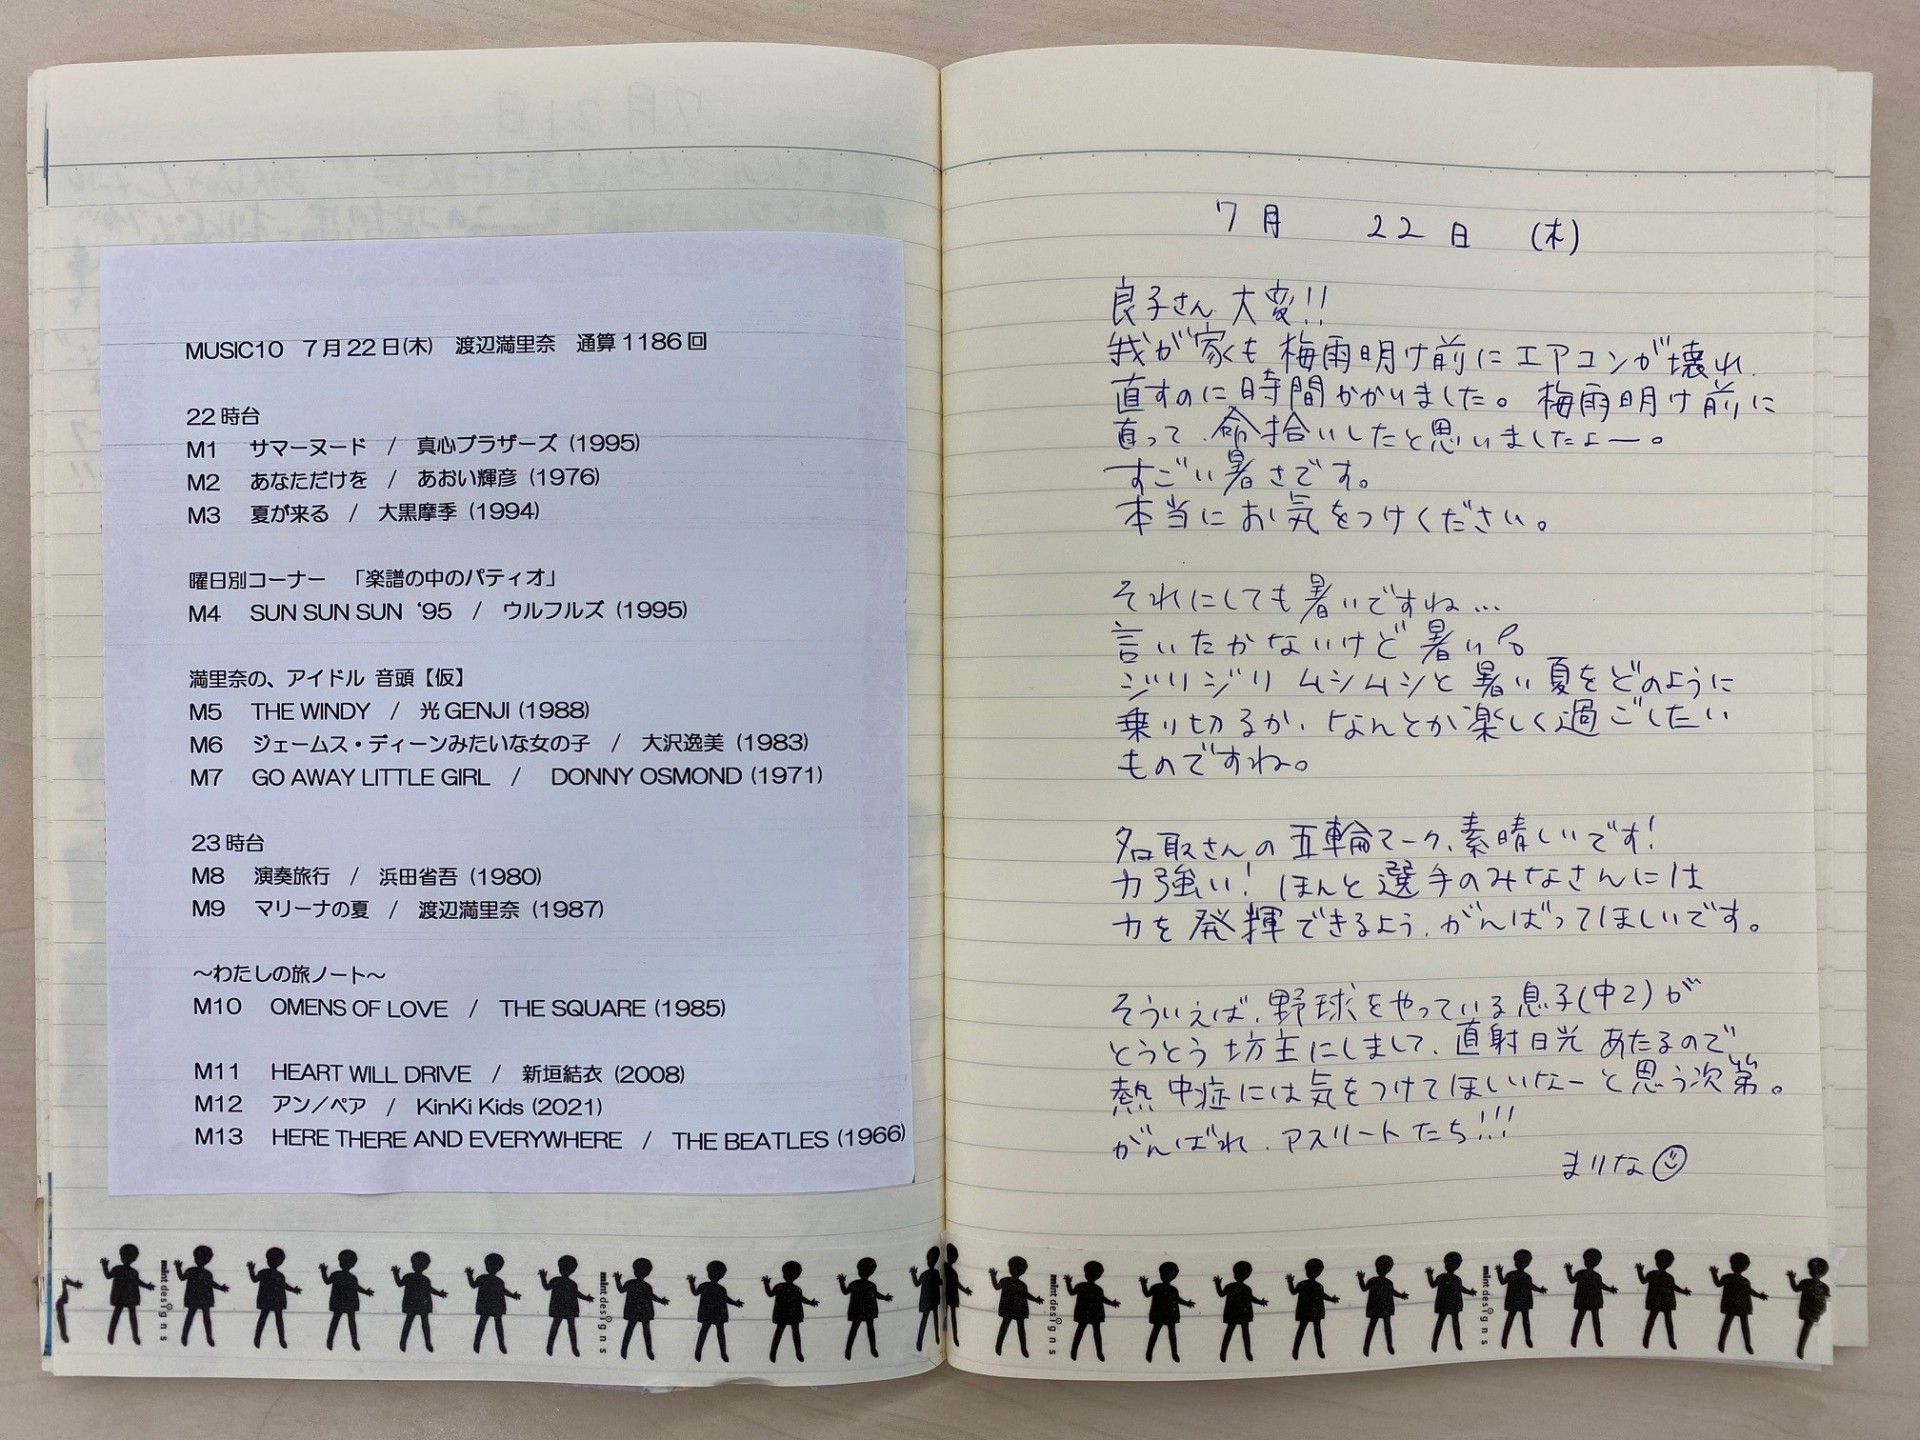 MUSIC10 7月22日(木) 渡辺満里奈 通算1186回
22時台
M1 サマーヌード / 真心ブラザーズ (1995)
M2 あなただけを / あおい輝彦 (1976)
M3 夏が来る / 大黒摩季 (1994)
曜日別コーナー 「楽譜の中のパティオ」
M4 SUN SUN SUN ‘95 / ウルフルズ (1995)
満里奈の、アイドル 音頭【仮】
M5 THE WINDY / 光GENJI (1988)
M6 ジェームス・ディーンみたいな女の子 / 大沢逸美 (1983)
M7 GO AWAY LITTLE GIRL / DONNY OSMOND (1971)
23時台
M8 演奏旅行 / 浜田省吾 (1980)
M9 マリーナの夏 / 渡辺満里奈 (1987)
～わたしの旅ノート～
M10 OMENS OF LOVE / THE SQUARE (1985)
M11 HEART WILL DRIVE / 新垣結衣 (2008)
M12 アン/ペア / KinKi Kids (2021)
M13 HERE THERE AND EVERYWHERE / THE BEATLES (1966)
7月 22日 (木)
良子さん 大変!!
我が家も梅雨明け前にエアコンが壊れ
直すのに時間かかりました。梅雨明け前に
直って、命拾いしたと思いましたよー。
すごい暑さです。
本当にお気をつけください。
それにしても暑いですね…
言いたかないけど暑い。
ジリジリ ムシムシと暑い夏をどのように
乗り切るか、なんとか楽しく過ごしたい
ものですね。
名取さんの五輪マーク、素晴しいです!
力強い! ほんと選手のみなさんには
力を発揮できるよう、がんばってほしいです。
そういえば、野球をやっている息子(中2)が
とうとう坊主にしまして、直射日光あたるので
熱中症には気をつけてほしいなーと思う次第。
がんばれ、アスリートたち!!!
まりな
mint designs
mint designs
mint designs
mint designs